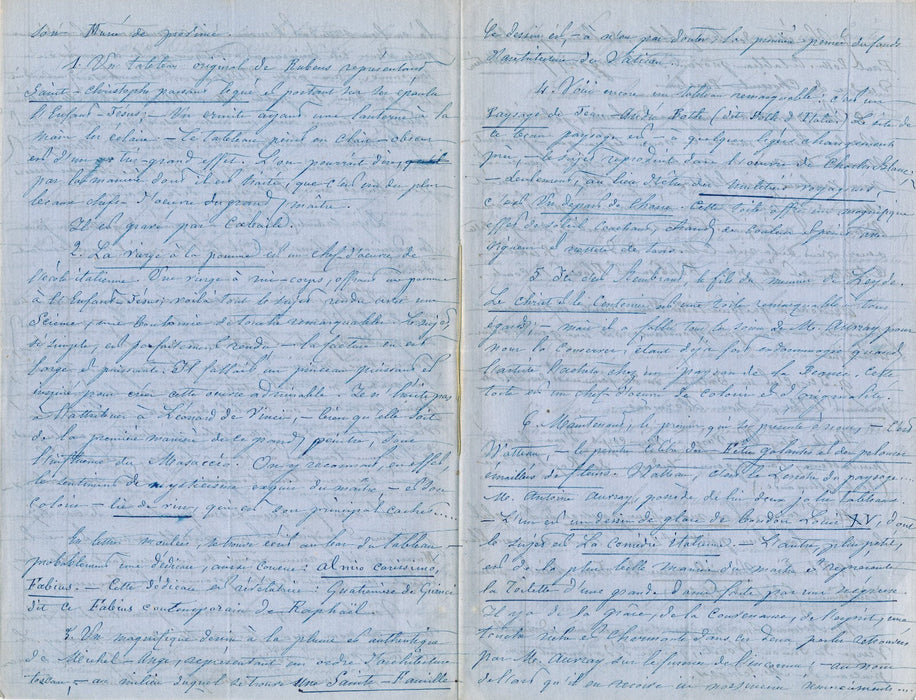 son Musée de province.
1. Un tableau original de Rubens représentant
Saint-Christophe passant et portant sur ses épaules
l'Enfant-Jésus; - Un ermite ayant une lanterne à la
main les éclaire - Le tableau peint en clair-obscur
est d'un très-grand effet. L'on pourrait dire,
par la manière dont il est traité, que c'est un des plus
beaux chefs-d'oeuvre du grand maître.
Il est gravé par
2. La Vierge à la pomme est un chef d'oeuvre de
l'école italienne. Une vierge à mi-corps, offrant une pomme
à l'Enfant-Jésus; voilà tout le sujet rendu avec une
science, une bonhomie de touche remarquable. Le sujet
si simple, est parfaitement rendu - la facture en est
large et puissante. Il fallait un pinceau puissant et
inspiré pour créer cette oeuvre admirable. Je n'hésite pas
à l'attribuer à Léonard de Vinci; - bien qu'elle soit
de la première manière de ce grand peintre, dans
du Masaccio. On y reconnait, en effet,
le sentiment de mysticisme exquis du maître - et son
coloris - lie de vin, qui est son principal cachet....
La lettre moulée, retrouvée écrit au bas du tableau, -
probablement une dédicace, ainsi conçue: al mio carissimo
Fabius. - Cette dédicace est révélatrice:
dit ce Fabius contemporain de Raphaël.
3. Un magnifique dessin à la plume et authentique
de Michel-Ange, représentant un ordre d'architecture
toscan; - au milieu duquel se trouve Une Sainte-Famille -
Ce dessin est, - à n'en pas douter, la première pensée du fonds
du Vatican.
4. Voici encore un tableau remarquable: c'est un
Paysage de Jean-André Both (dit Both d'Italie). Le site de
ce beau paysage est - à quelques légers changements
près, - le sujet reproduit dans l'oeuvre de Charles Blanc;
- seulement, au lieu d'être des muletiers voyageurs -
c'est Un départ de Chasse. Cette toile offre un magnifique
effet de soleil couchant, chaud de couleur et peint
vigueur et de tons.
5. Ici c'est Rembrand, le fils du meunier de Leyde.
Le Christ à la Couronne est une toile remarquable à tous
égards; - mais il a fallu tous les soins de Mr. Auvray pour
nous la conserver, étant déjà fort endommagée quand
l'artiste l'acheta chez un paysan de la Cette
toile est un chef d'oeuvre de coloris et d'empreinte.
6. Maintenant, le premier qui se présente à nous, - c'est
Watteau, - le peintre des Fêtes galantes et des pelouses
émaillées de fleurs. Watteau, c'est le du paysage...
Mr. Antoine Auvray, possède de lui deux jolis tableaux
- L'un est un dessin de glace de boudoir Louis XV, dont
le sujet est La comédie italienne - L'autre, plus petit,
est de la plus belle manière du maître et représente
la Toilette d'une grande dame faite par une négresse.
Il y a de la grâce, de la contenance, de l'esprit, une
touche riche et charmante dans ces deux perles retrouvées
par Mr. Auvray sur le fumier de l'inconnu; - au nom
de l'art qu'il en reçoive ici nos sincères remerciements....